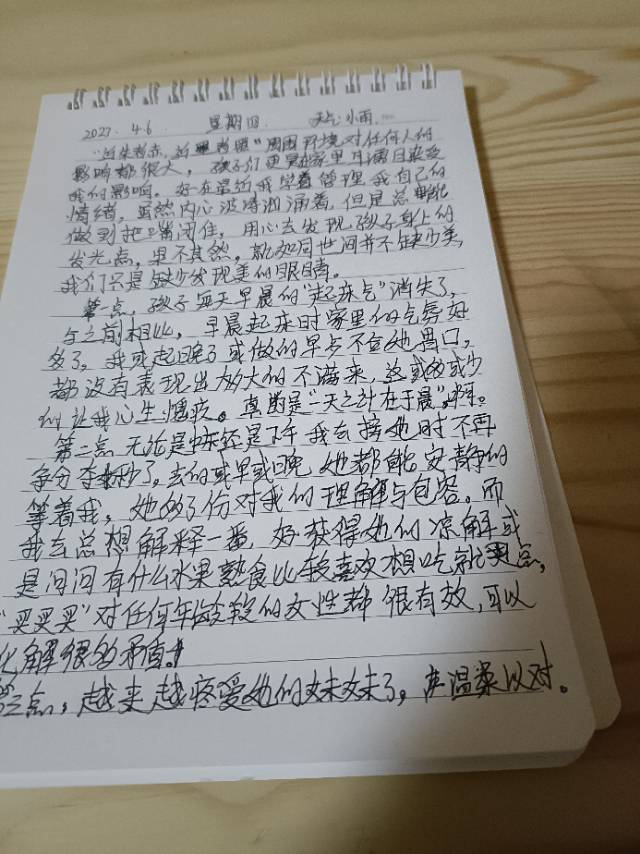 2023. 4.6 星期四. 天气:小雨...
"近朱者赤,近墨者黑"周围环境对任何人的
影响都很大,孩子们更是在家里耳濡目染受
我们影响。好在最近我学着管理我自己的
情绪,虽然内心波涛汹涌着,但是总能
做到把嘴闭住,用心去发现孩子身上的
发光点,果不其然,就如同世间并不缺少美,
我们只是缺少发现美的眼睛。
第一点,孩子每天早晨的"起床气"消失了,
与之前相比,早晨起来时家里的气氛好
多了,我或起晚了或做的早点不合她胃口,
都没有表现出加大的不满来,这或多或少
的让我心生愧疚。真的是"一天之计在于晨"呀。
第二点 无论是中午还是下午 我去接她时不再
争分夺秒了,去的或早或晚,她都能安静的
等着我,她多了份对我的理解与包容。而
我去总想解释一番,好获得她的谅解或
是问问有什么水果熟食比较喜欢想吃就买点,
"买买买"对任何年龄段的女性都很有效,可以
化解很多矛盾!
第三点,越来越疼爱她的妹妹了,声温柔以对。